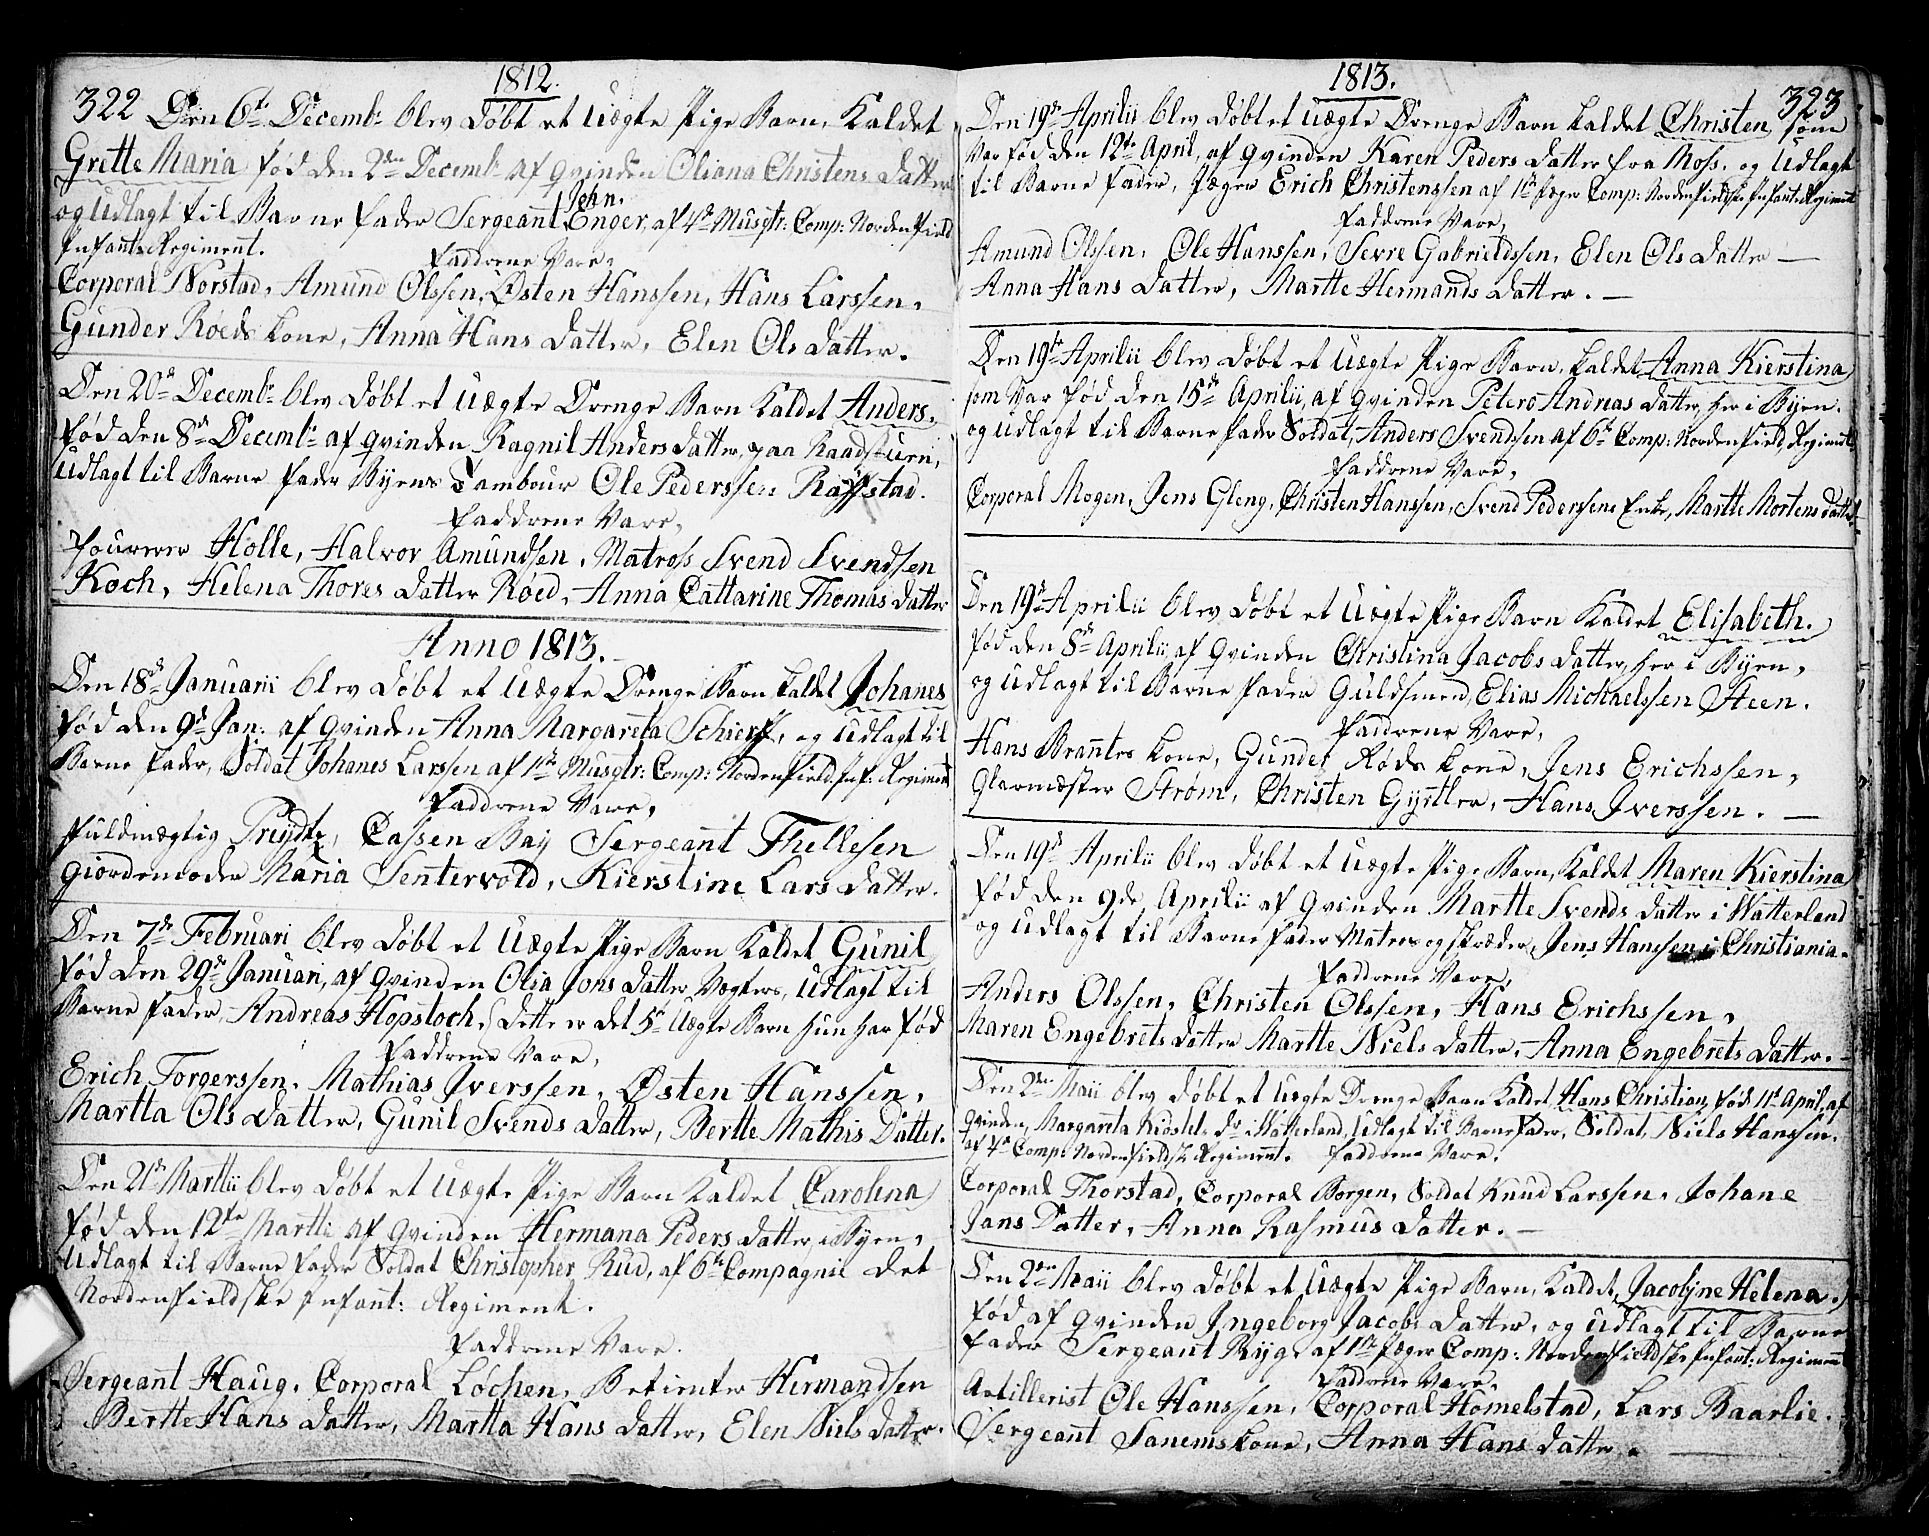 1812.
322 Den 6te Decemb: blev døbt et Uægte Pige Barn, Kaldet
Grette Maria fød den 2den Decemb: af qvinden Oliana Christens datter
John.
og udlagt til Barne fader Sergeant Enger, af 4de Musqtr: Comp: Nordenfield
Infant: Regiment.
Faddrene Vare,
Corporal Norstad, Amund Olssen, Østen Hanssen, Hans Larssen,
Gunder Røeds kone, Anna Hans datter, Elen Ols datter.
Den 20de Decemb: blev døbt et Uægte Drenge Barn Kaldet Anders,
fød den 8de Decemb: af qvinden Ragnil Anders datter, paa Raadstuen,
Udlagt til Barne fader Byens Tambour Ole Pederssen
Faddrene Vare,
Fourerer Holle, Halvor Amundsen, Matross Svend Svendsen
Koch, Helena Thores datter Røed, Anna Cattarine Thomas datter
Anno 1813.
Den 18de Januarii blev døbt et Uægte Drenge Barn kaldet Johanes
fød den 9de Jan: af qvinden Anna Margareta og udlagt til
Barne fader, Soldat Johanes Larssen af 1ste Musqtr: Comp: Nordenfield. Inf: Regiment
Faddrene Vare,
Fuldmægtig Preydtz, Cassen Bay Sergeant Thellesen
Giordemoder Maria Sentervold, Kierstine Lars datter.
Den 7de Februari blev døbt et Uægte Pige Barn Kaldet Gunil
fød den 29de Januari, af qvinden Olia Jons datter Vegters, Udlagt til
Barne fader, Andreas Hopstoch, dette er det 5te Uægte Barn hun har fød
Faddrene Vare,
Erich Torgerssen, Mathias Iverssen, Østen Hanssen,
Martta Ols datter, Gunil Svends datter, Bertte Mathis Datter.
Den 21de Marttii blev døbt et Uægte Pige Barn Kaldet Carolina
fød den 12te Martti af qvinden Hermana Peders datter i Byen,
Udlagt til Barne fader Soldat Christopher Rud, af 6te Compagnie det
Nordenfieldske Infant: Regiment.
Faddrene Vare.
Sergeant Haug, Corporal Løchen, Betienter Hermandsen
Bertte Hans datter, Martta Hans datter, Elen Niels datter.
1813.
323
Den 19de Aprilii blev døbt et Uægte Drenge Barn kaldet Christen, som
var fød den 12te April, af qvinden Karen Peders datter fra Moss, og Udlagt
til Barne fader, Jæger Erich Christenssen af 1ste Jeger Comp: Nordenfieldske Infant: Regiment
Faddrene Vare,
Amund Olssen, Ole Hanssen, Sevre Gabrieldssen, Elen Ols datter —
Anna Hans datter, Martte Hermands datter. —
Den 19de Aprilii blev døbt et Uægte Pige Barn, kaldet Anna Kierstina
som var fød den 15de Aprilii, af qvinden Petero Andreas datter, her i Byen.
og udlagt til Barne fader Soldat, Anders Svendssen af 6te Comp: Nordenfield, Regiment,
Faddrene Vare,
Corporal Mogen, Jens Gleng, Christen Hanssen, Svend Pederssens Enke, Martte Mortens datter.
Den 19de Aprilii blev døbt et Uægte Pige Barn Kaldet Elisabeth.
fød den 8de Aprilii af qvinden Christina Jacobs datter, her i Byen,
og udlagt til Barne fader Guldsmed, Elias Michaelssen Steen.
Faddrene Vare,
Hans Brantes kone, Gunder Røds kone, Jens Erichssen,
Glarmæster Strøm, Christen Gjystler, Hans Iverssen. —
Den 19de Aprilii blev døbt et Uægte Pige Barn, Kaldet Maren Kierstina
fød den 9de Aprilii af qvinden Martte Svends datter i Watterland
og udlagt til Barne fader Matros og skræder, Jens Hanssen i Christiania.
Faddrene Vare,
Anders Olssen, Christen Olssen, Hans Erichssen,
Maren Engebrets datter Martte Niels datter, Anna Engebrets datter. —
Den 2den Maii blev døbt et Uægte Drenge Barn Kaldet, Hans Christian, fød 11te April, af
qvinden, Margareta dr. i Watterland, Udlagt til Barne fader, Soldat, Niels Hanssen,
af 4de Comp: Nordenfieldsk Regiment. Faddrene Vare.
Corporal Thorstad, Corporal Borgen, Soldat Knud Larssen, Johane
Jans Datter, Anna Rasmus datter. —
Den 2den Maii blev døbt et Uægte Pige Barn, Kaldet, Jacobine Helena,
fød af qvinden Ingeborg Jacobs datter, og udlagt til Barne
fader Sergeant Ryge af 1ste Jæger Comp: Nordenfieldske Infant: Regiment
Faddrene Vare,
Artillerist Ole Hanssen, Corporal Homelstad, Lars Baarlie.
Sergeant Sanems kone, Anna Hans datter. —